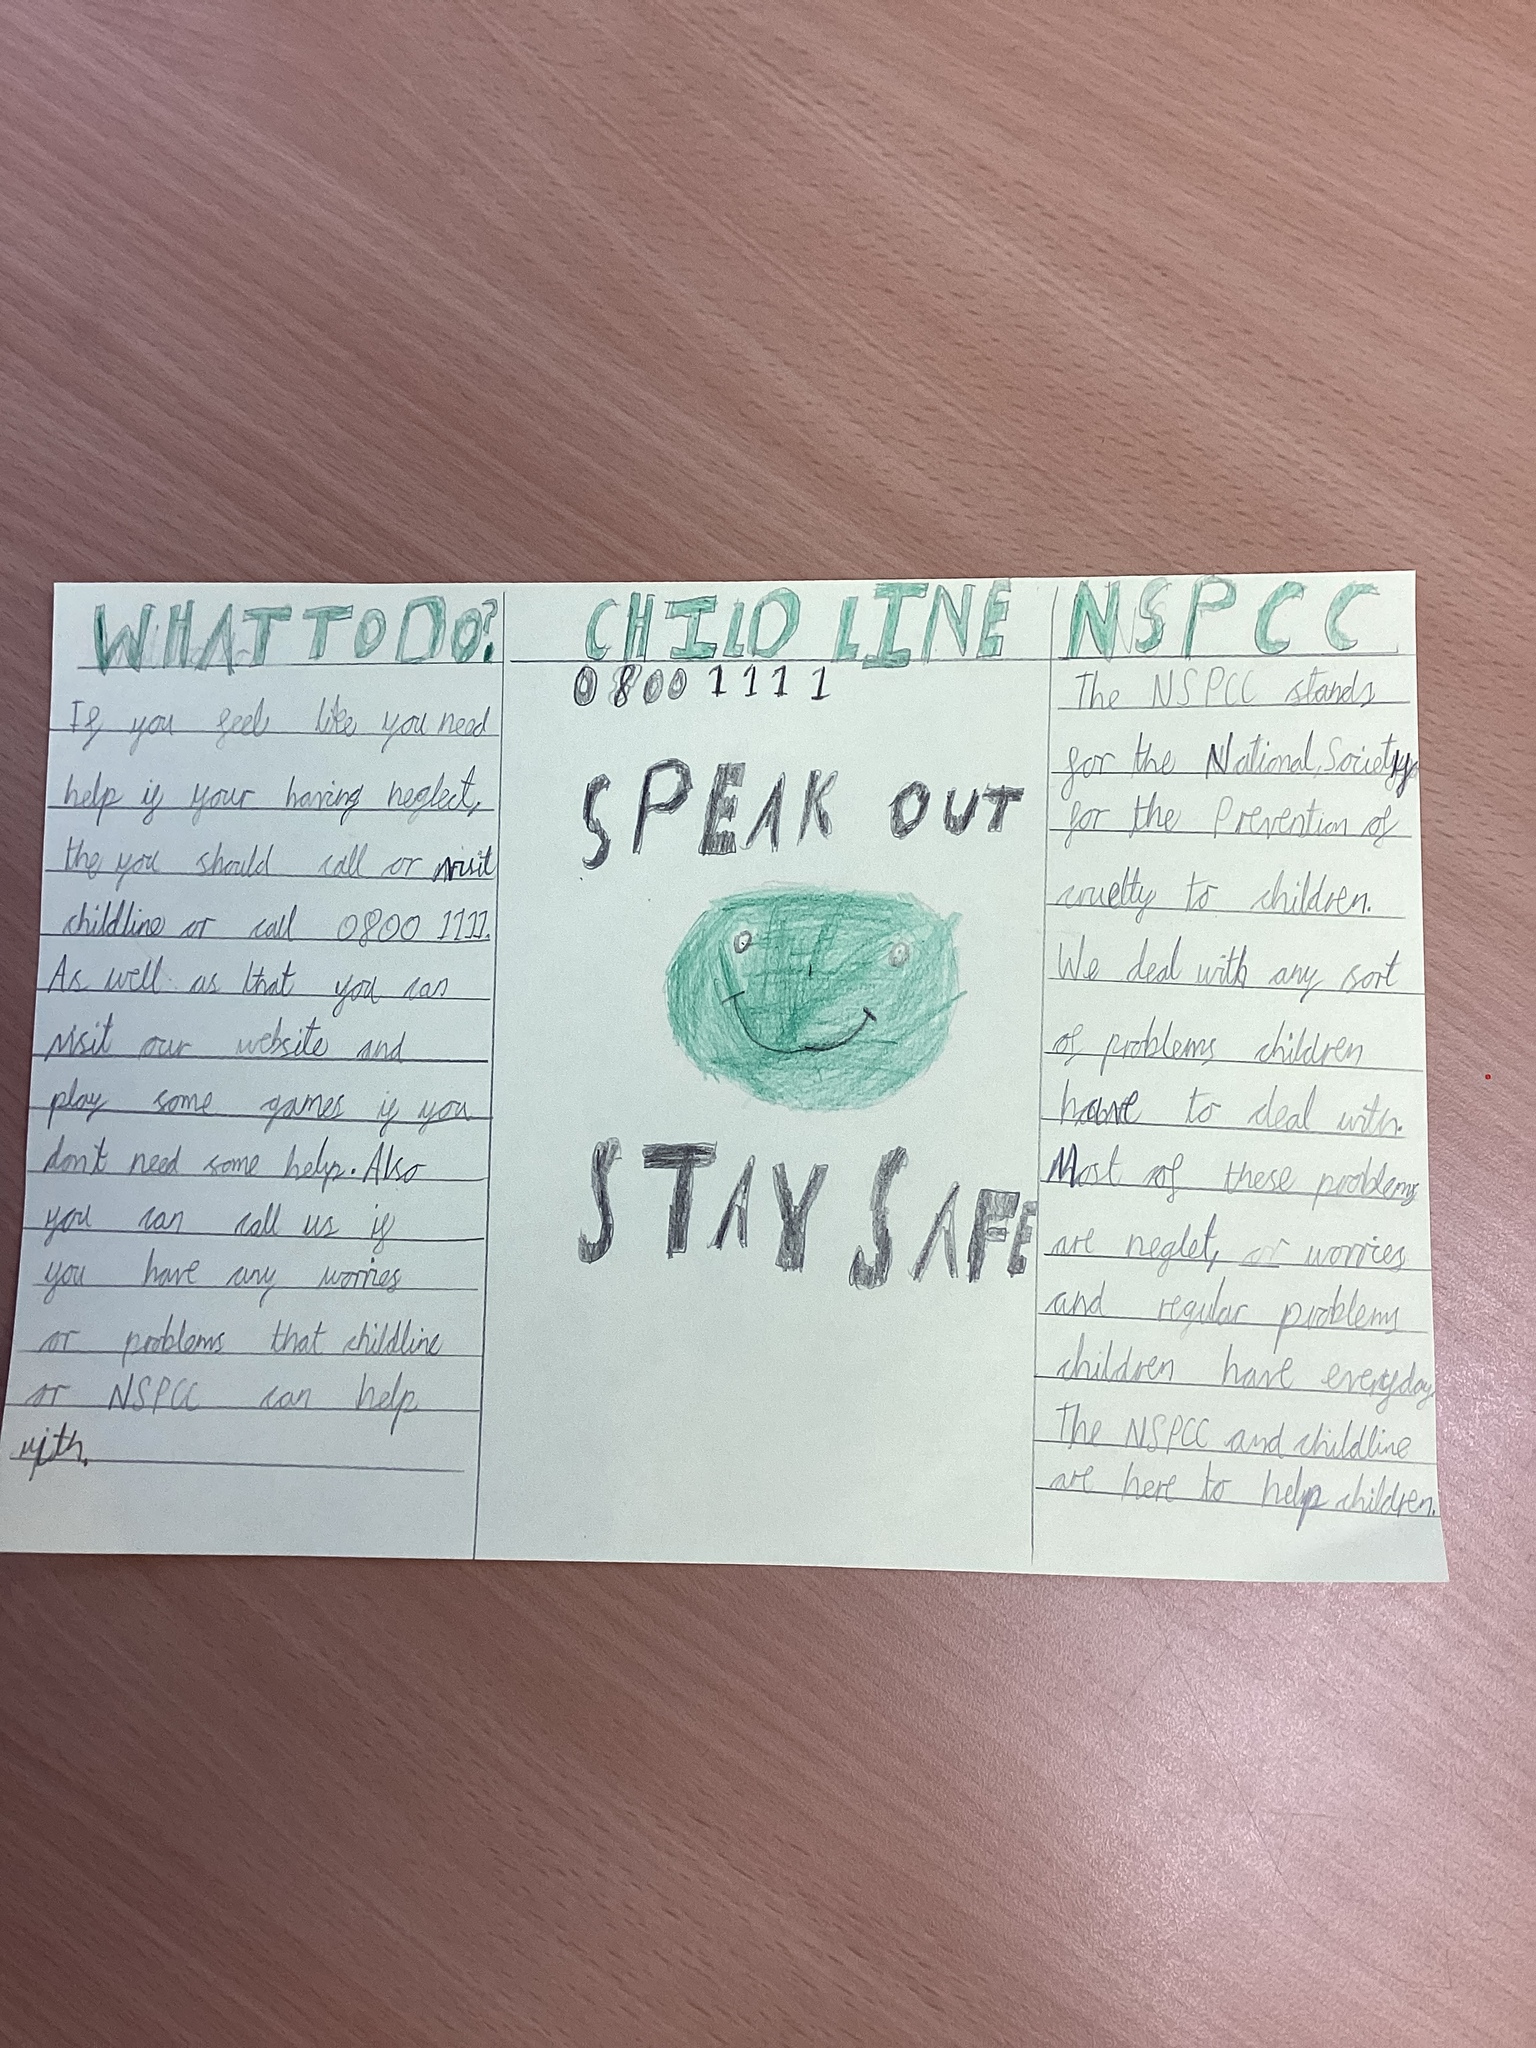 WHAT TO DO?
If you feel like you need
help if your having neglect,
the you should call or visit
childline or call 0800 1111.
As well as that you can
visit our website and
play some games if you
don't need some help. Also
you can call us if
you have any worries
or problems that childline
or NSPCC can help
with.
CHILD LINE
0800 1111
SPEAK OUT
STAY SAFE
NSPCC
The NSPCC stands
for the National Society
for the Prevention of
cruelty to children.
We deal with any sort
of problems children
have to deal with.
Most of these problems
are neglet, or worries
and regular problems
children have everyday
The NSPCC and childline
are here to help children.